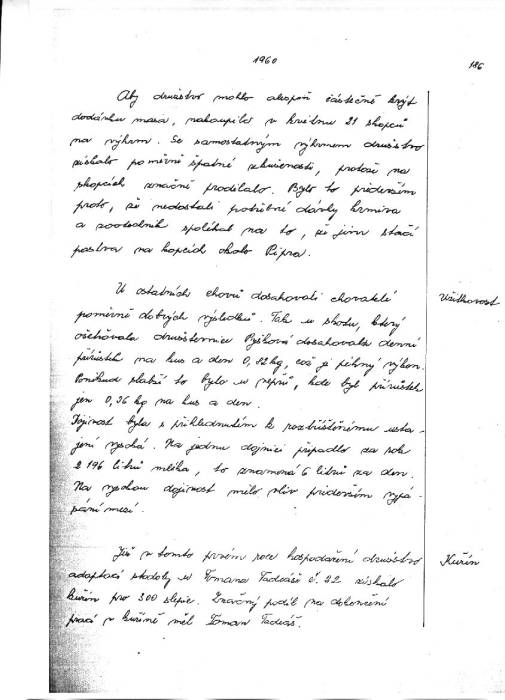 1960
186
Aby družstvo mohlo alespoň částečně krýt
dodávku masa, nakoupilo v květnu 21 skopců
na výkrm. Se samostatným výkrmem družstvo
získalo poměrně špatné zkušenosti, protože na
skopcích značně prodělalo. Bylo to především
proto, že nedostali potřebné dávky krmiva
a zootechnik spoléhal na to, že jim stačí
pastva na kopcích okolo Pipra.
U ostatních chovů dosahovali chovatelé
Užitkovost
poměrně dobrých výsledků. Tak u skotu, který
ošetřovala družstevnice Pyšková dosahovala denní
přírůstek na kus a den 0,82 kg, což je pěkný výkon.
Poněkud slabší to bylo u vepřů, kde byl přírůstek
jen 0,36 kg na kus a den.
Dojivost byla s přihlédnutím k roztříštěnému ustá-
jení vysoká. Na jednu dojnici připadlo za rok
2 196 litrů mléka, to znamená 6 litrů za den.
Na vysokou dojivost mělo vliv především vypá-
pání mezí.
Již v tomto prvém roce hospodaření družstvo
Kurín
adaptací stodoly u Tomana Tadeáše č. 22 získalo
kurín pro 300 slepic. Značný podíl na dokončení
prací v kuríně měl Toman Tadeáš.